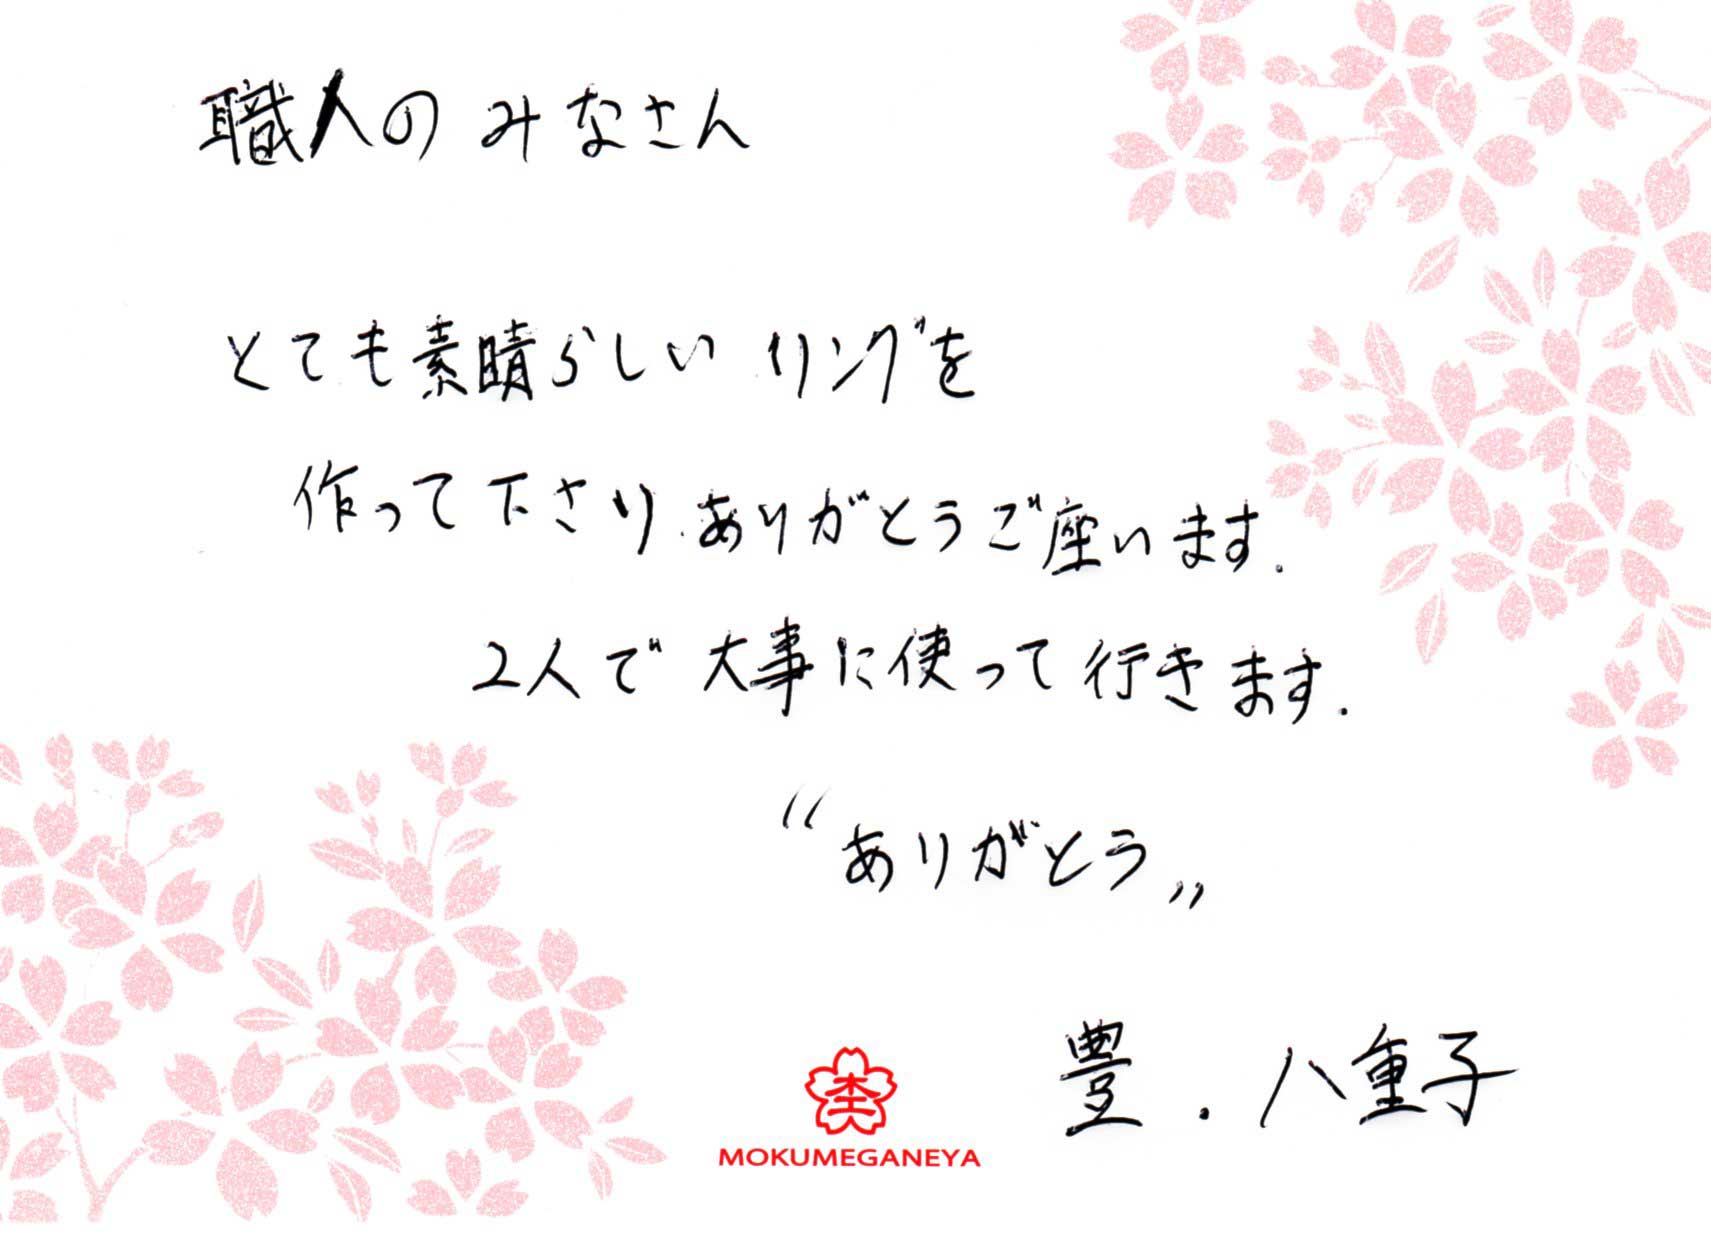 職人の みなさん
とても素晴らしい リングを
作って下さり ありがとうご座います.
2人で 大事に使って行きます.
“ありがとう„
豊.八重子
MOKUMEGANEYA